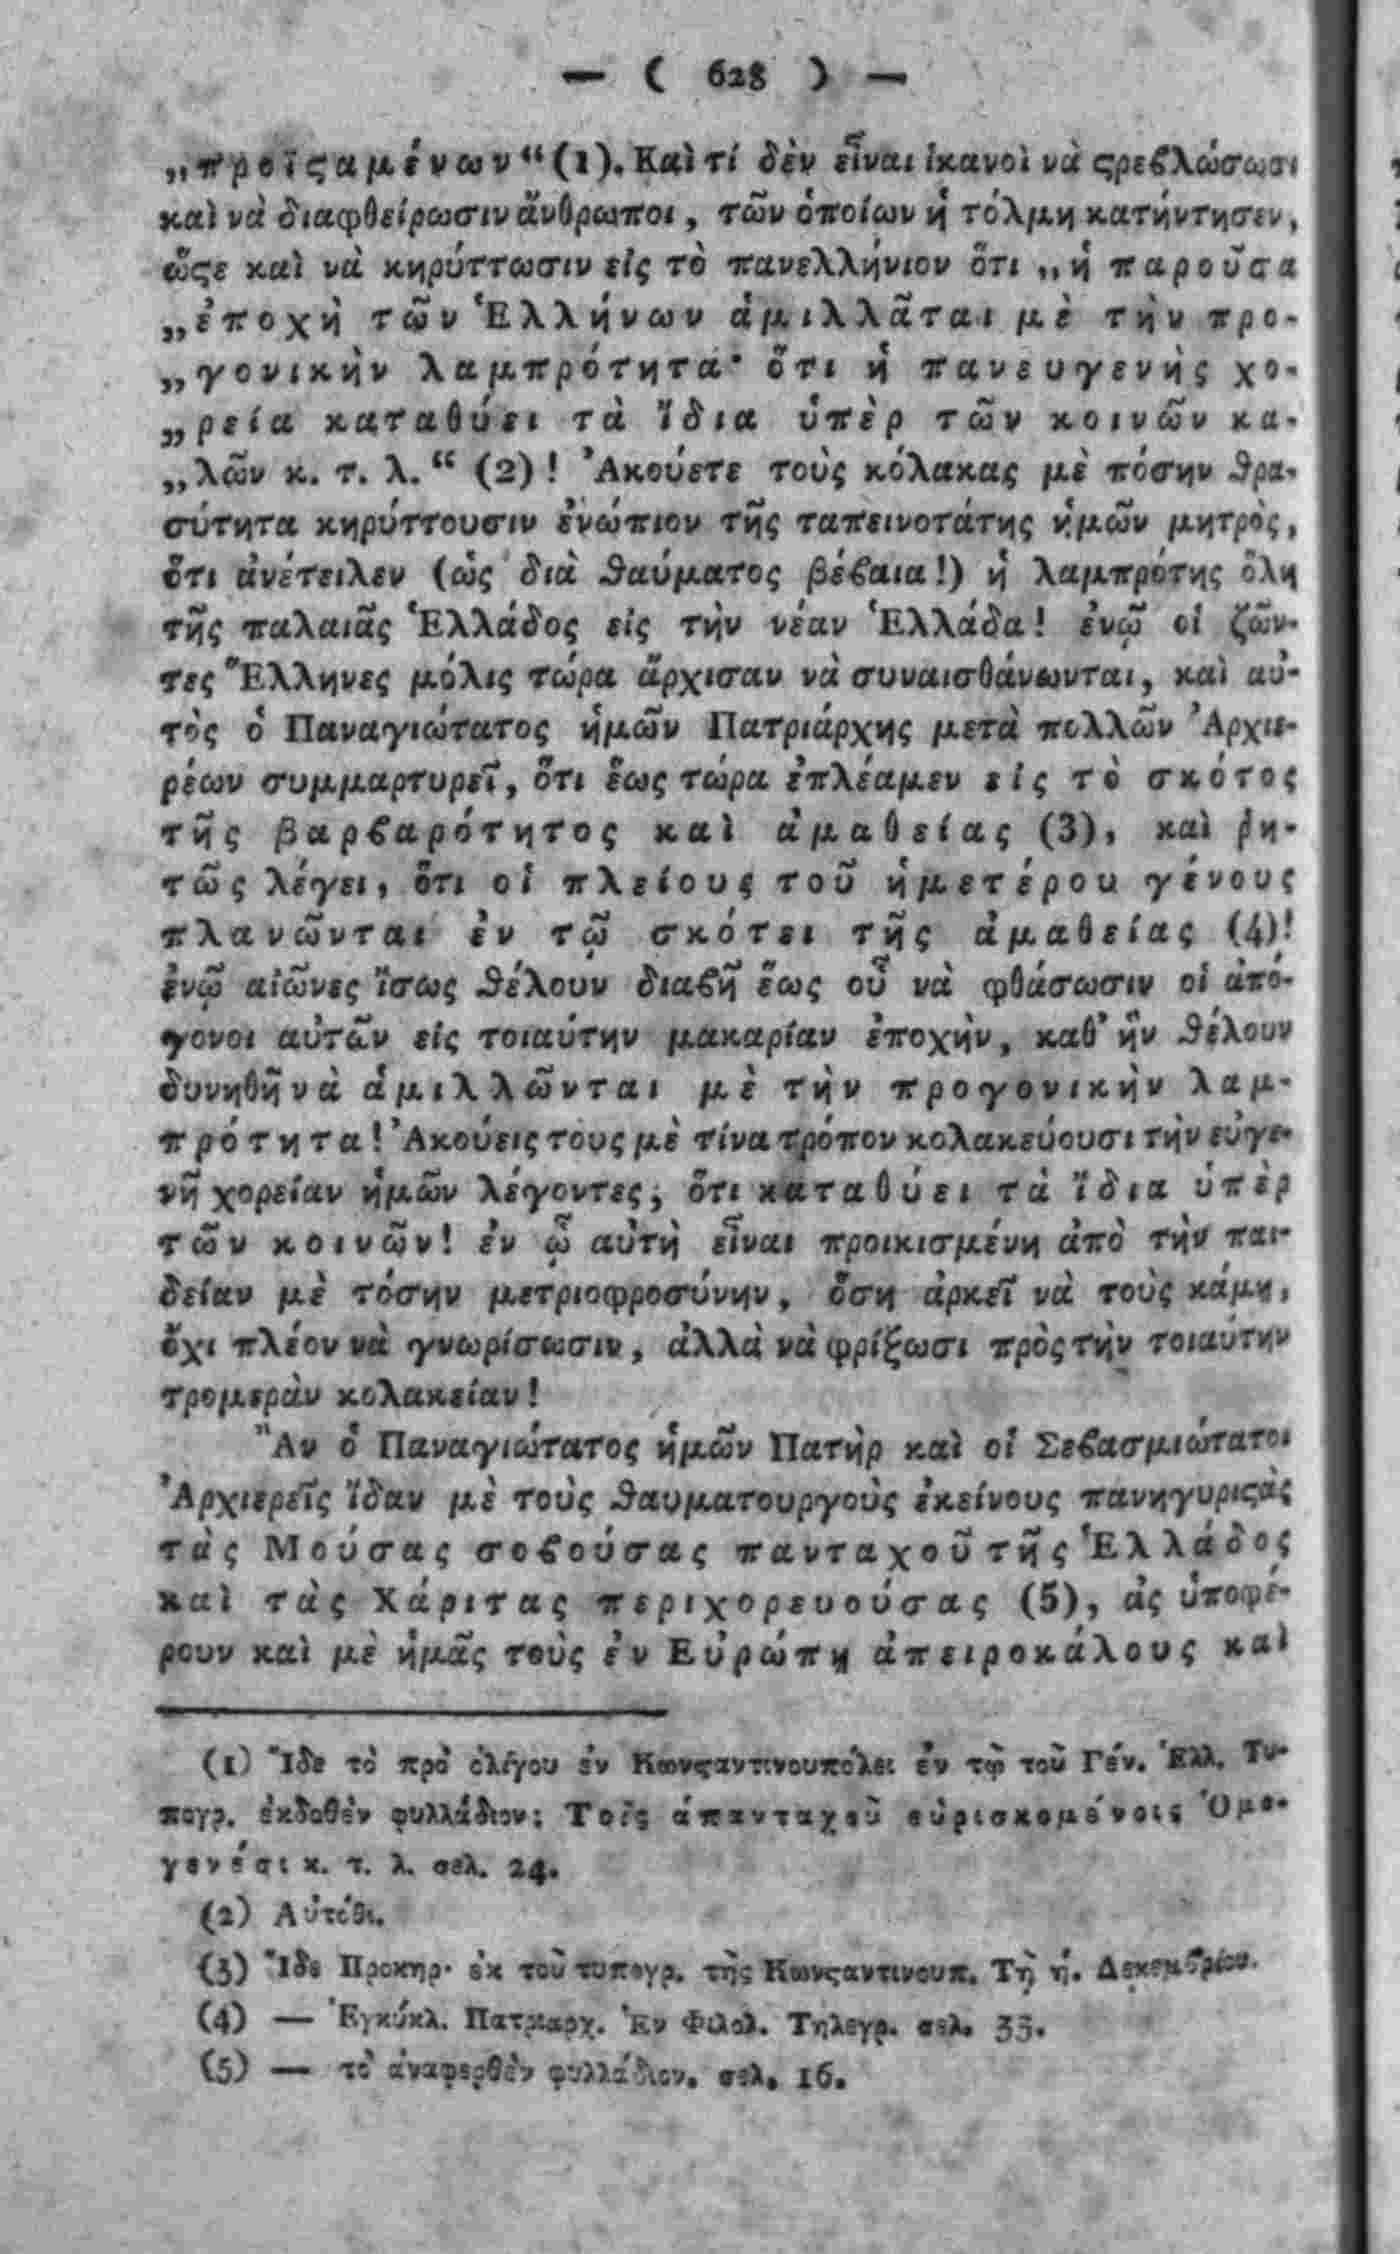 — ( 628 ) —
„προϊςαμένων“ (1). Καὶ τί δὲν εἶναι ἱκανοὶ νὰ ςρεβλώσωσι
καὶ νὰ διαφθείρωσιν ἄνθρωποι, τῶν ὁποίων ἡ τόλμη κατήντησεν,
ὥςε καὶ νὰ κηρύττωσιν εἰς τὸ πανελλήνιον ὅτι „ἡ παροῦσα
„ἐποχὴ τῶν Ἑλλήνων ἁμιλλᾶται μὲ τὴν προ-
„γονικὴν λαμπρότητα· ὅτι ἡ πανευγενὴς χο-
„ρεία καταθύει τὰ ἴδια ὑπὲρ τῶν κοινῶν κα-
„λῶν κ. τ. λ.“ (2)! Ἀκούετε τοὺς κόλακας μὲ πόσην θρα-
σύτητα κηρύττουσιν ἐνώπιον τῆς ταπεινοτάτης ἡμῶν μητρὸς,
ὅτι ἀνέτειλεν (ὡς διὰ θαύματος βέβαια!) ἡ λαμπρότης ὅλη
τῆς παλαιᾶς Ἑλλάδος εἰς τὴν νέαν Ἑλλάδα! ἐνῷ οἱ ζῶν-
τες Ἕλληνες μόλις τώρα ἄρχισαν νὰ συναισθάνωνται, καὶ αὐ-
τὸς ὁ Παναγιώτατος ἡμῶν Πατριάρχης μετὰ πολλῶν Ἀρχιε-
ρέων συμμαρτυρεῖ, ὅτι ἕως τώρα ἐπλέαμεν εἰς τὸ σκότος
τῆς βαρβαρότητος καὶ ἀμαθείας (3), καὶ ῥη-
τῶς λέγει, ὅτι οἱ πλείους τοῦ ἡμετέρου γένους
πλανῶνται ἐν τῷ σκότει τῆς ἀμαθείας (4)!
ἐνῷ αἰῶνες ἴσως θέλουν διαβῆ ἕως οὗ νὰ φθάσωσιν οἱ ἀπό-
γονοι αὐτῶν εἰς τοιαύτην μακαρίαν ἐποχὴν, καθ᾽ ἣν θέλουν
δυνηθῆ νὰ ἁμιλλῶνται μὲ τὴν προγονικὴν λαμ-
πρότητα! Ἀκούεις τους μὲ τίνα τρόπον κολακεύουσι τὴν εὐγε-
νῆ χορείαν ἡμῶν λέγοντες, ὅτι καταθύει τὰ ἴδια ὑπὲρ
τῶν κοινῶν! ἐν ᾧ αὐτὴ εἶναι προικισμένη ἀπὸ τὴν παι-
δείαν μὲ τόσην μετριοφροσύνην, ὅση ἀρκεῖ νὰ τοὺς κάμη,
ὄχι πλέον νὰ γνωρίσωσιν, ἀλλὰ νὰ φρίξωσι πρὸς τὴν τοιαύτην
τρομερὰν κολακείαν!
Ἂν ὁ Παναγιώτατος ἡμῶν Πατὴρ καὶ οἱ Σεβασμιώτατοι
Ἀρχιερεῖς ἴδαν μὲ τοὺς θαυματουργοὺς ἐκείνους πανηγυριςὰς
τὰς Μούσας σοβούσας πανταχοῦ τῆς Ἑλλάδος
καὶ τὰς Χάριτας περιχορευούσας (5), ἂς ὑποφέ-
ρουν καὶ μὲ ἡμᾶς τοὺς ἐν Εὐρώπη ἀπειροκάλους καὶ
(1) Ἴδε τὸ πρὸ ὀλίγου ἐν Κωνςαντινουπόλει ἐν τῷ τοῦ Γέν. Ἑλλ. Τυ-
πογρ. ἐκδοθὲν φυλλάδιον: Τοῖς ἁπανταχοῦ εὑρισκομένοις Ὁμο-
γενέσι κ. τ. λ. σελ. 24.
(2) Αὐτόθι.
(3) Ἴδε Προκηρ. ἐκ τοῦ τυπογρ. τῆς Κωνςαντινουπ. Τῇ ή. Δεκεμβρίου.
(4) — Ἐγκύκλ. Πατριαρχ. Ἐν Φιλολ. Τηλεγρ. σελ. 33.
(5) — τὸ ἀναφερθὲν φυλλάδιον. σελ. 16.